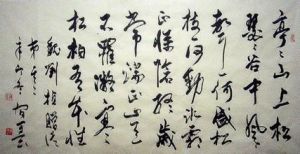 亭々山上松
瑟々谷中風々
聲一何盛松
枝一何勁冰霜
正慘悽終歲
常端正豈
不罹凝寒
松柏有本性
魏劉楨贈從
弟